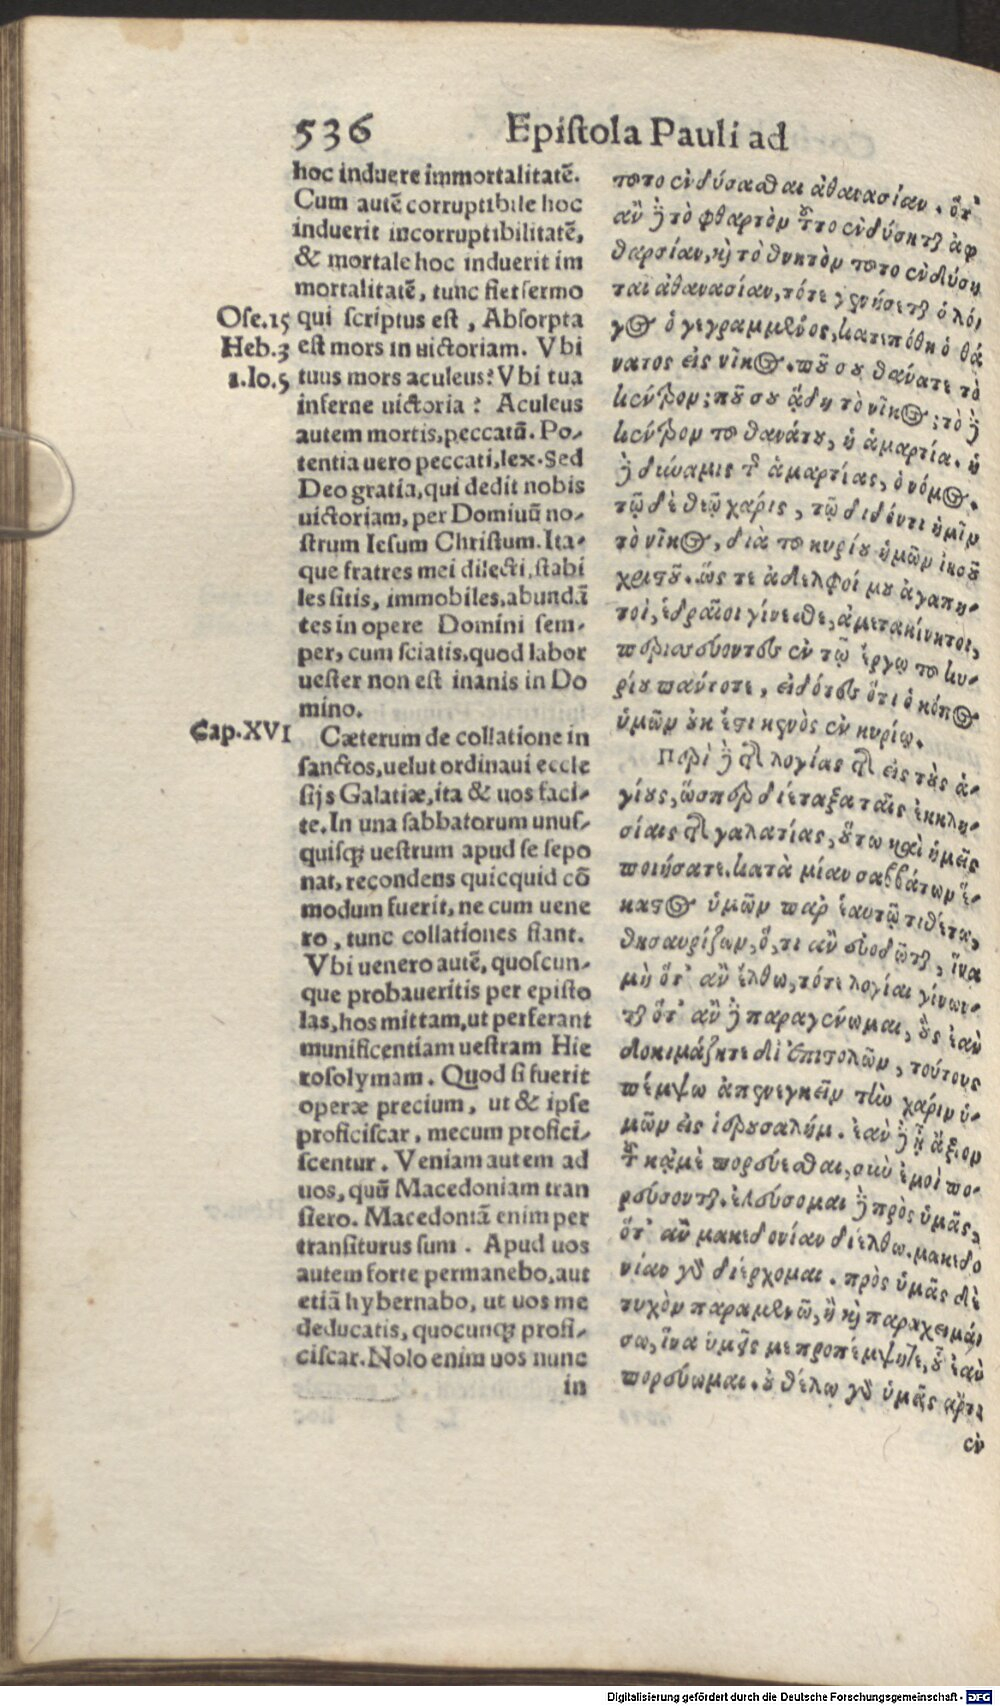 536 Epistola Pauli ad
hoc induere immortalitatē.
Cum autē corruptibile hoc
induerit incorruptibilitatē,
& mortale hoc induerit im
mortalitatē, tunc fiet sermo
Ose.15 qui scriptus est, Absorpta
Heb.3 est mors in uictoriam. Vbi
1.Io.5 tuus mors aculeus? Vbi tua
inferne uictoria? Aculeus
autem mortis, peccatū. Po-
tentia uero peccati, lex. Sed
Deo gratia, qui dedit nobis
uictoriam, per Domiuū no-
strum Iesum Christum. Ita-
que fratres mei dilecti, stabi
les sitis, immobiles, abundā
tes in opere Domini sem-
per, cum sciatis, quod labor
uester non est inanis in Do
mino.
Cap.XVI Cæterum de collatione in
sanctos, uelut ordinaui eccle
sijs Galatiæ, ita & uos faci-
te. In una sabbatorum unus-
quisq; uestrum apud se sepo
nat, recondens quicquid cō
modum fuerit, ne cum uene
ro, tunc collationes fiant.
Vbi uenero autē, quoscun-
que probaueritis per episto
las, hos mittam, ut perferant
munificentiam uestram Hie
rosolymam. Quod si fuerit
operæ precium, ut & ipse
proficiscar, mecum profici-
scentur. Veniam autem ad
uos, quū Macedoniam tran
siero. Macedoniā enim per
transiturus sum. Apud uos
autem forte permanebo, aut
etiā hybernabo, ut uos me
deducatis, quocunq; profi-
ciscar. Nolo enim uos nunc
in
τοῦτο ἐνδύσασθαι ἀθανασίαν. ὅτ'
ἂν δὲ τὸ φθαρτὸν τοῦτο ἐνδύσηται ἀφ
θαρσίαν, καὶ τὸ θνητὸν τοῦτο ἐνδύση
ται ἀθανασίαν, τότε γενήσεται ὁ λό-
γος ὁ γεγραμμένος, κατεπόθη ὁ θά
νατος εἰς νῖκος. ποῦ σου θάνατε τὸ
κέντρον; ποῦ σου ᾅδη τὸ νῖκος; τὸ δὲ
κέντρον τοῦ θανάτου, ἡ ἁμαρτία. ἡ
δὲ δύναμις τῆς ἁμαρτίας, ὁ νόμος.
τῷ δὲ θεῷ χάρις, τῷ διδόντι ἡμῖν
τὸ νῖκος, διὰ τοῦ κυρίου ἡμῶν ἰησοῦ
χριστοῦ. ὥς τε ἀδελφοί μου ἀγαπη-
τοὶ, ἑδραῖοι γίνεσθε, ἀμετακίνητοι,
περισσεύοντες ἐν τῷ ἔργῳ τοῦ κυ-
ρίου πάντοτε, εἰδότες ὅτι ὁ κόπος
ὑμῶν οὐκ ἔστι κενὸς ἐν κυρίῳ.
Περὶ δὲ τῆς λογίας τῆς εἰς τοὺς ἁ-
γίους, ὥσπερ διέταξα ταῖς ἐκκλη-
σίαις τῆς γαλατίας, οὕτω καὶ ὑμεῖς
ποιήσατε. κατὰ μίαν σαββάτων ἕ-
καστος ὑμῶν παρ' ἑαυτῷ τιθέτω,
θησαυρίζων, ὅ, τι ἂν εὐοδῶται, ἵνα
μὴ ὅτ' ἂν ἔλθω, τότε λογίαι γίνων-
ται. ὅτ' ἂν δὲ παραγένωμαι, οὓς ἐὰν
δοκιμάζητε δι' ἐπιστολῶν, τούτους
πέμψω ἀπενεγκεῖν τὴν χάριν ὑ-
μῶν εἰς ἱερουσαλήμ. ἐὰν δὲ ᾖ ἄξιον
τοῦ κᾀμὲ πορεύεσθαι, σὺν ἐμοὶ πο-
ρεύσονται. ἐλεύσομαι δὲ πρὸς ὑμᾶς,
ὅτ' ἂν μακεδονίαν διέλθω. μακεδο
νίαν γὰρ διέρχομαι. πρὸς ὑμᾶς δὲ
τυχὸν παραμενῶ, ἢ καὶ παραχειμά-
σω, ἵνα ὑμεῖς με προπέμψητε, οὗ ἐὰν
πορεύωμαι. οὐ θέλω γὰρ ὑμᾶς ἄρτι
ἐν
Digitalisierung gefördert durch die Deutsche Forschungsgemeinschaft - DFG